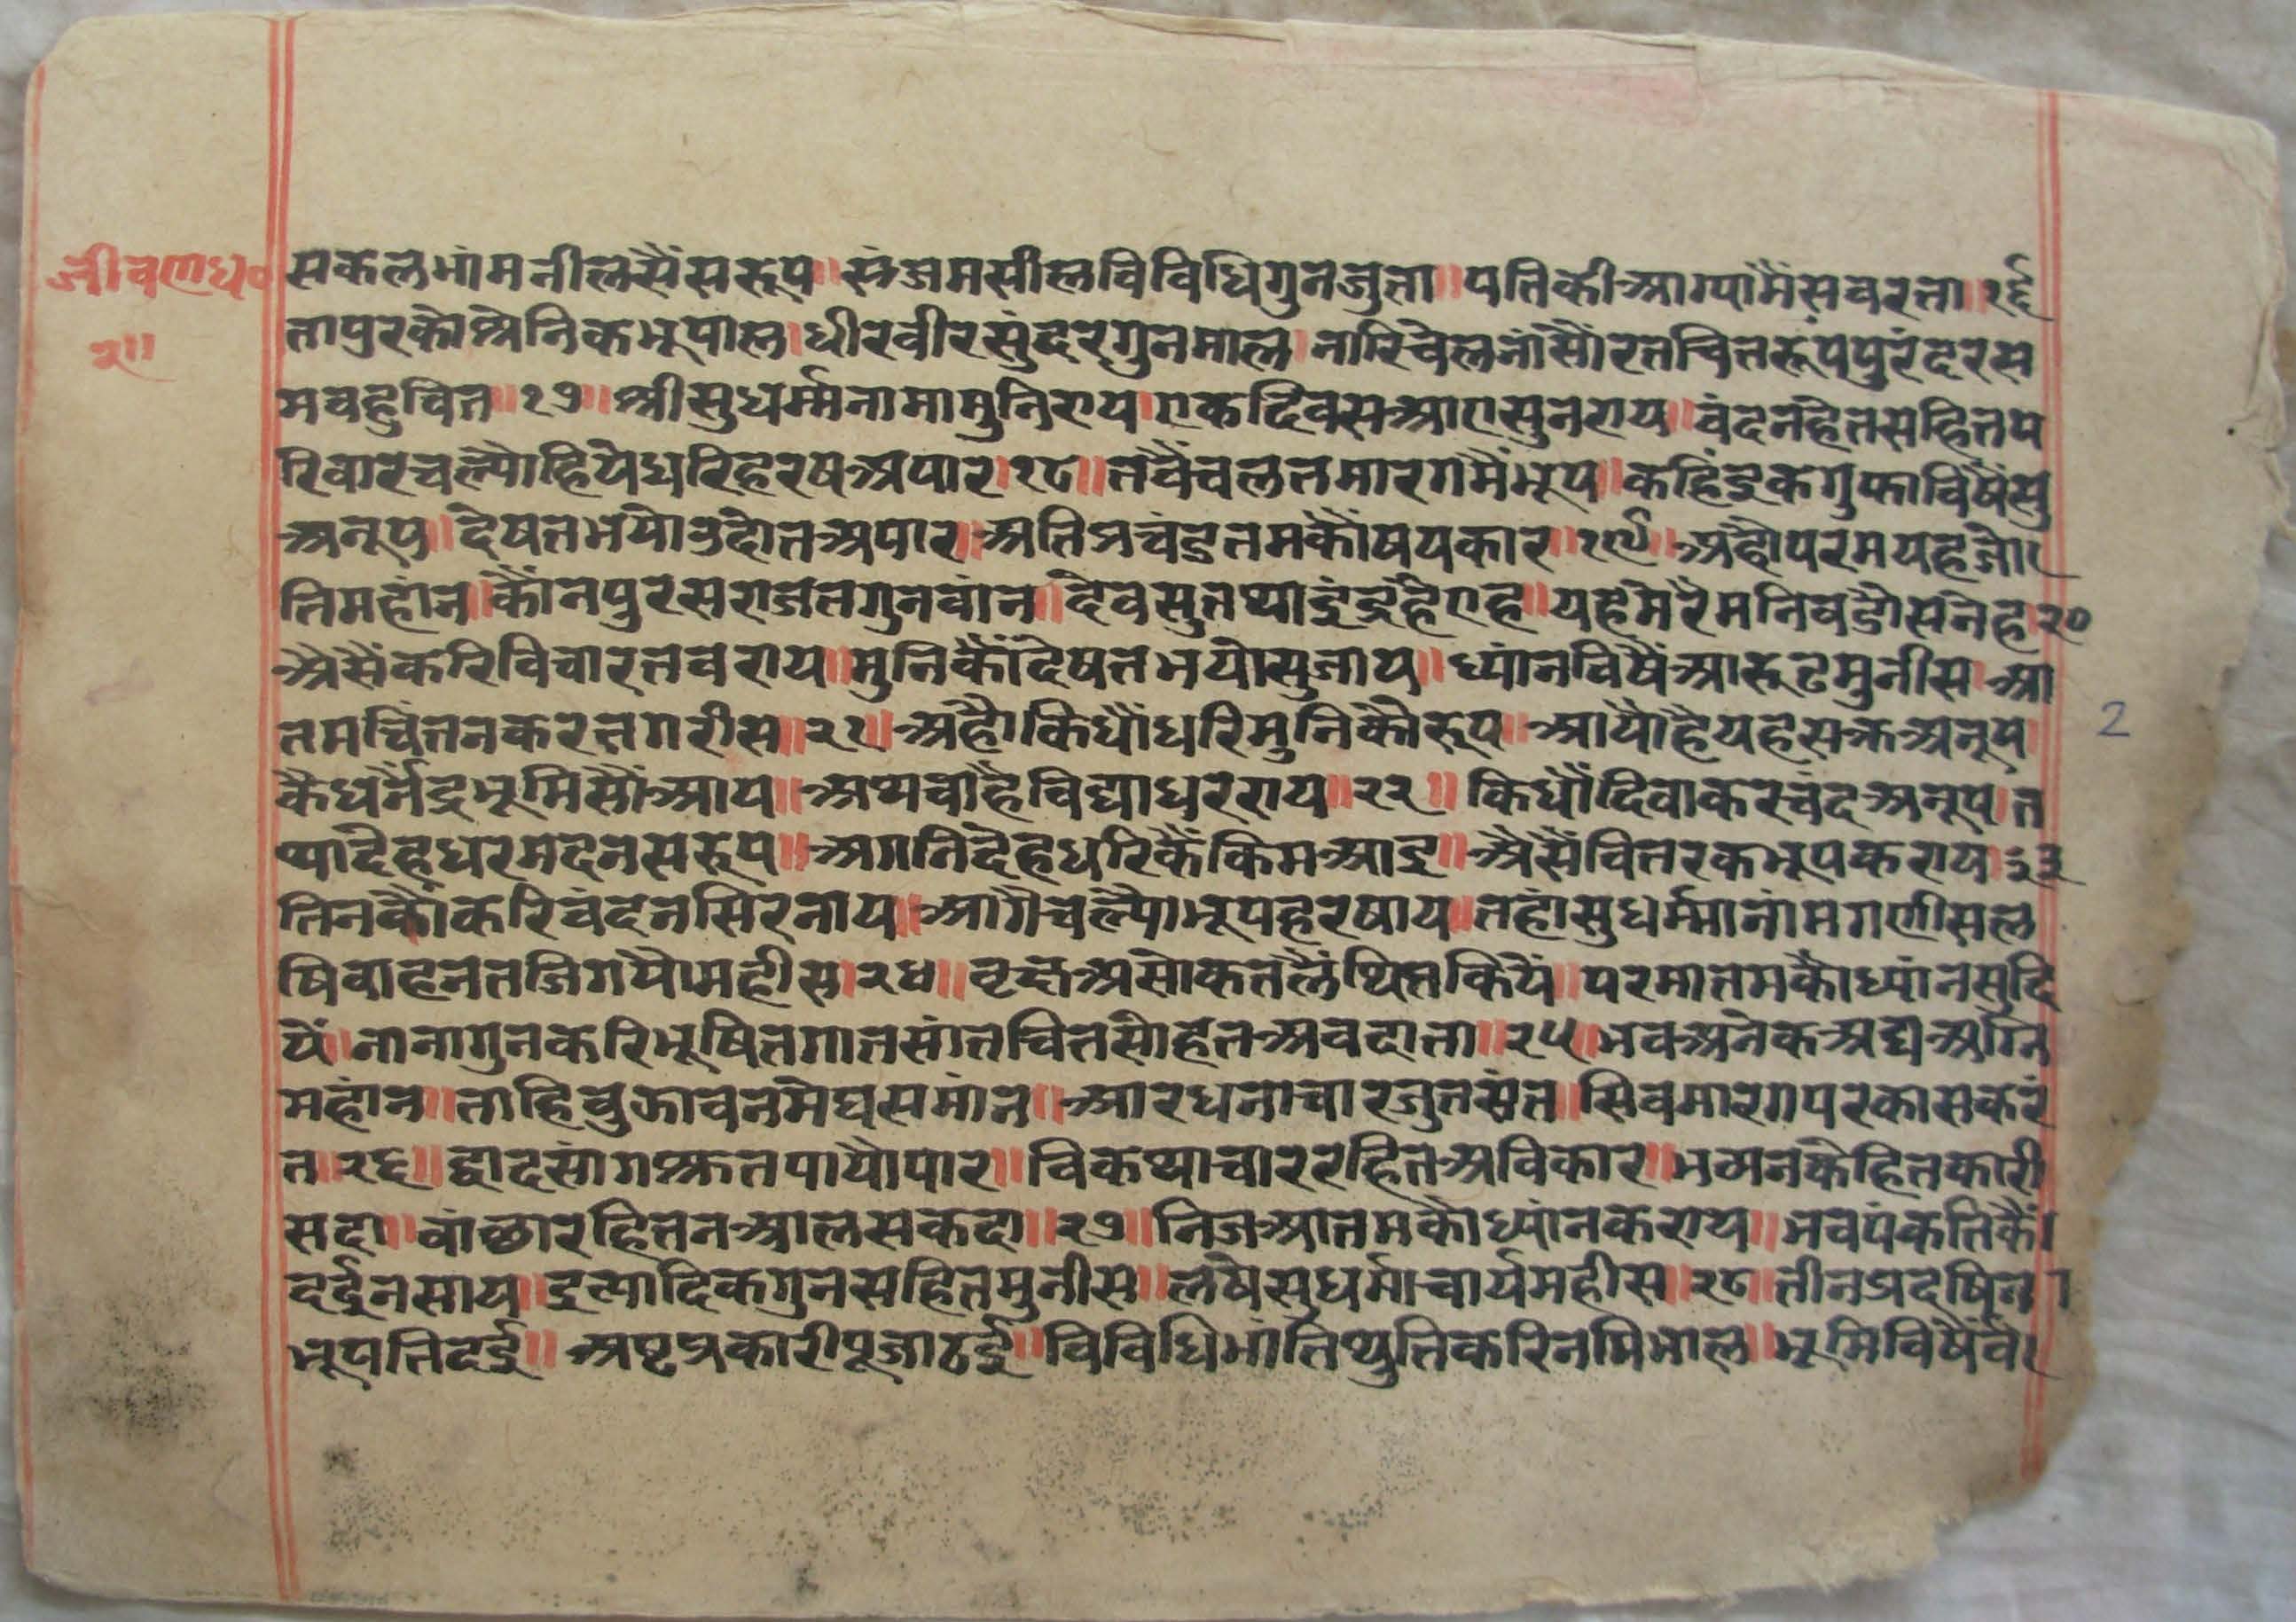 जीवणध०
२॥
सकलभांमनीलसैंसरूप॥संजमसीलविविधिगुनजुता॥पतिकीआग्यांमैंसवरता॥१६
तापुरकौश्रेनिकभूपाल।धीरवीरसुंदरगुनमाल।नारिचेलनांसौंरतचितरूपपुरंदरस
मवहुवित॥१७॥श्रीसुधर्म्मनामामुनिराय।एकदिवसआएसुनराय॥वंदनहेतसहितप
रिवारचल्यौहियेधरिहरषअपार।१८॥तवैंचलतमारगमैंभूप॥कहिंइकगुफाविषैंसु
अनूप॥देषतभयोउदोतअपार॥अतिप्रचंडतमकौंषयकार॥१९॥अहौपरमयहजो
तिमहांन॥कौंनपुरसराजतगुनवांन॥देवसुतथाइंद्रहैएह॥यहमेरैमनिवडौसनेह२०
अैसैंकरिविचारतवराय॥मुनिकौंदेषतभयोसुजाय॥ध्यांनविषैंआरूढमुनीस।आ
तमचिंतनकरतगरीस॥२१॥अहौकिधौंधरिमुनिकौरूप॥आयौहैयहसक्रअनूप
कैधर्नेंद्रभूमिसौंआय॥अथवाहैविद्याधरराय॥२२॥किधौंदिवाकरचंदअनूप।त
थादेहधरमदनसरूप॥अगनिदेहधरिकैंकिमआइ॥अैसैंवितरकभूपकराय।२३
तिनकौंकरिवंदनसिरनाय॥आगैचल्यौभूपहरषाय॥तहांसुधर्म्मानांमगणीसल
षिवाहनतजिगयौमहीस।२४॥वृछअसोकतलैंथितकियें॥परमातमकौध्यांनसुदि
यें॥नानागुनकरिभूषितगातसांतचितसोहतअवदाता॥२५॥भवअनेकअघअगनि
महांन॥ताहिवुझावनमेघसमांन॥आरधनाचारजुतसंत॥सिवमारगपरकासकरं
त॥२६॥द्वादसांगश्रुतपायौपार॥विकथाचाररहितअविकार॥भव्यनकेहितकारी
सदा॥वांछारहितनआलसकदा॥२७॥निजआतमकौध्यांनकराय॥भवपंकतिकैं।
दर्दुनसाय॥इत्यादिकगुनसहितमुनीस॥लषेसुधर्माचार्यमहीस॥२८॥तीनप्रदषिन।
भूपतिदई॥अष्टप्रकारीपूजाठई॥विविधिभांतिथुतिकरिनमिभाल॥भूमिविषैंवै
2